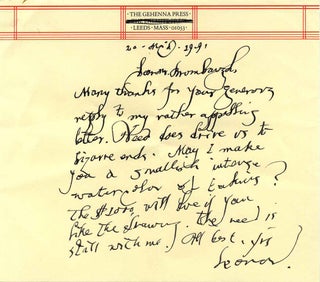 · THE GEHENNA PRESS ·
· LEEDS · MASS · 01053 ·
20 - April - 1991
Many thanks for your generous
reply to my rather appalling
letter. Need does drive us to
bizarre ends. May I make
you a smallish intense
watercolor of Eakins?
The $1000 will live if you
like the drawing. The need is
still with me. All best - yrs
Leonard